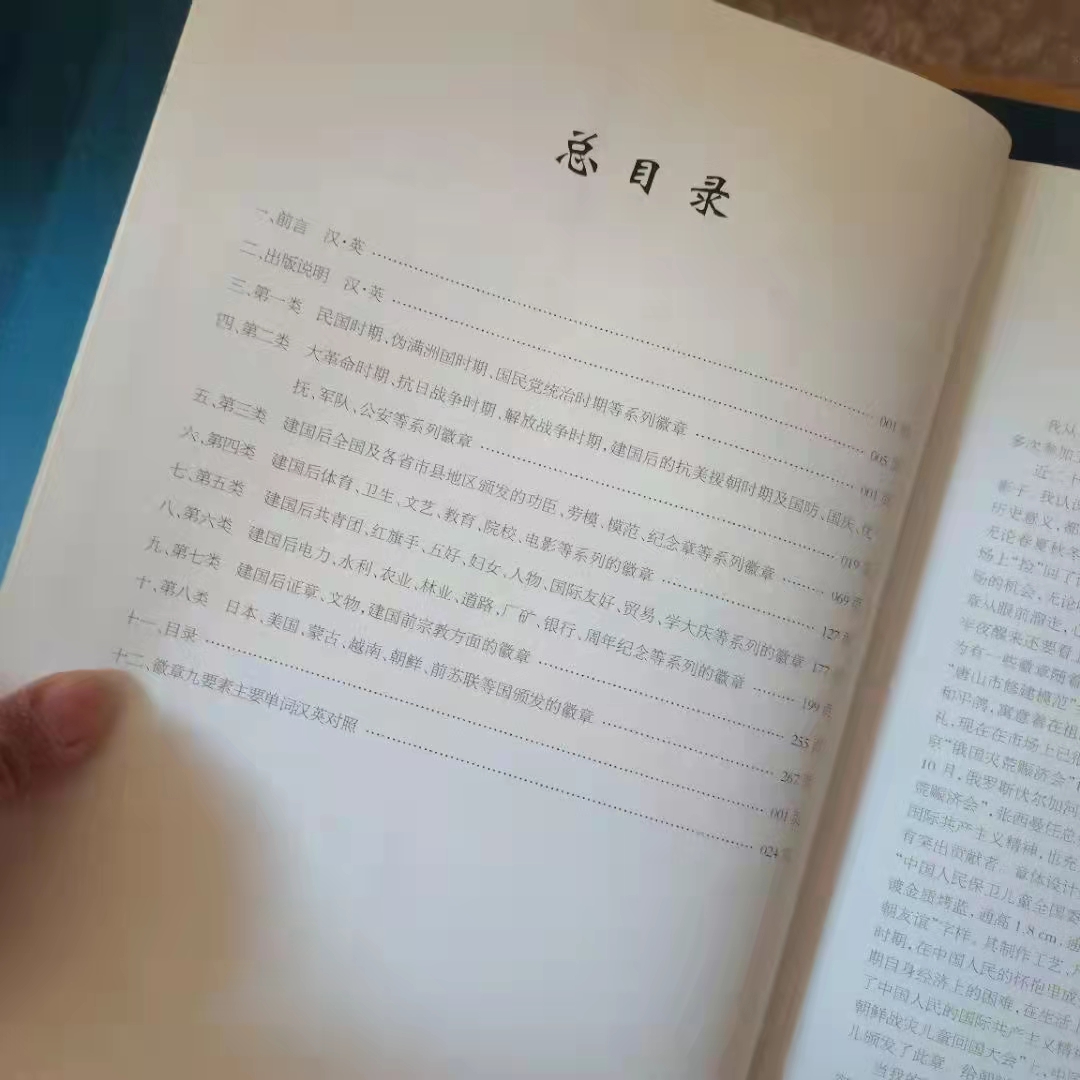 总目录
一、前言 汉·英 …… 001页
二、出版说明 汉·英 …… 005页
三、第一类 民国时期、伪满洲国时期、国民党统治时期等系列徽章 …… 001页
四、第二类 大革命时期、抗日战争时期、解放战争时期、建国后的抗美援朝时期及国防、国庆、优
抚、军队、公安等系列徽章 …… 019页
五、第三类 建国后全国及各省市县地区颁发的功臣、劳模、模范、纪念章等系列徽章 …… 069页
六、第四类 建国后体育、卫生、文艺、教育、院校、电影等系列的徽章 …… 127页
七、第五类 建国后共青团、红旗手、五好、妇女、人物、国际友好、贸易、学大庆等系列的徽章 177页
八、第六类 建国后电力、水利、农业、林业、道路、厂矿、银行、周年纪念等系列的徽章 …… 199页
九、第七类 建国后证章、文物,建国前宗教方面的徽章 …… 255页
十、第八类 日本、美国、蒙古、越南、朝鲜、前苏联等国颁发的徽章 …… 267页
十一、目录 …… 001页
十二、徽章九要素主要单词汉英对照 …… 024页
我从
多次参加
近二十
影子。我认识
历史意义,都
无论春夏秋冬
场上“捡”回了
肠的机会,无论
章从眼前溜走,心
半夜醒来还要看上
为有一些徽章随着
“唐山市修建模范”
和平鸽,寓意着在祖
礼,现在在市场上已很
京“俄国灾荒赈济会”
10月,俄罗斯伏尔加河
荒赈济会”,张西曼任总
国际共产主义精神,也充
有突出贡献者。章体设计
“中国人民保卫儿童全国委
镀金质烤蓝,通高1.8cm,通
朝友谊”字样。其制作工艺、
时期,在中国人民的怀抱里成
期自身经济上的困难,在生活
了中国人民的国际共产主义精神
朝鲜战灾儿童回国大会”
儿颁发了此章。给朝
当我的